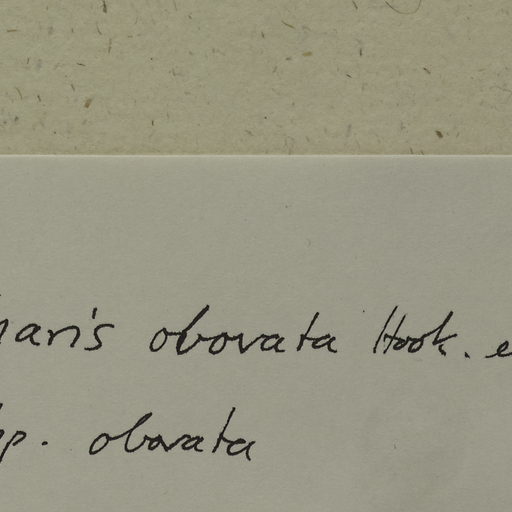 haris obovata Hook. e
sp. obovata